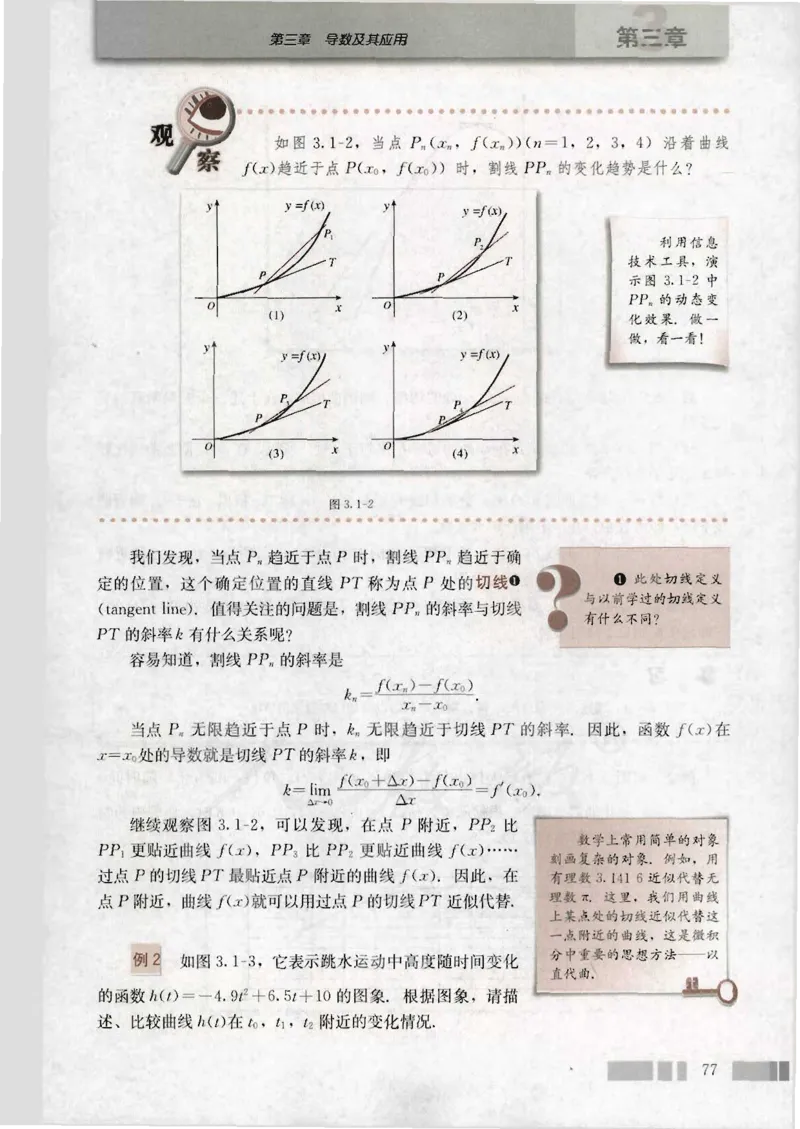 第三章 导数及其应用
第三章
观察
如图 3.1-2，当点 Pₙ(xₙ，f(xₙ))(n=1，2，3，4) 沿着曲线
f(x)趋近于点 P(x₀，f(x₀)) 时，割线 PPₙ 的变化趋势是什么？
y y=f(x) P₁ T P O x (1)
y y=f(x) P₂ T P O x (2)
y y=f(x) P₃ T P O x (3)
y y=f(x) P₄ T P O x (4)
图 3.1-2
利用信息
技术工具，演
示图 3.1-2 中
PPₙ 的动态变
化效果．做一
做，看一看！
我们发现，当点 Pₙ 趋近于点 P 时，割线 PPₙ 趋近于确
定的位置，这个确定位置的直线 PT 称为点 P 处的切线❶
(tangent line)．值得关注的问题是，割线 PPₙ 的斜率与切线
PT 的斜率 k 有什么关系呢？
❶ 此处切线定义
与以前学过的切线定义
有什么不同？
容易知道，割线 PPₙ 的斜率是
kₙ=\frac{f(xₙ)-f(x₀)}{xₙ-x₀}．
当点 Pₙ 无限趋近于点 P 时，kₙ 无限趋近于切线 PT 的斜率．因此，函数 f(x)在
x=x₀处的导数就是切线 PT 的斜率 k，即
k=\lim_{Δx→0}\frac{f(x₀+Δx)-f(x₀)}{Δx}=f′(x₀)．
继续观察图 3.1-2，可以发现，在点 P 附近，PP₂ 比
PP₁ 更贴近曲线 f(x)，PP₃ 比 PP₂ 更贴近曲线 f(x)……
过点 P 的切线 PT 最贴近点 P 附近的曲线 f(x)．因此，在
点 P 附近，曲线 f(x)就可以用过点 P 的切线 PT 近似代替．
数学上常用简单的对象
刻画复杂的对象．例如，用
有理数 3.141 6 近似代替无
理数 π．这里，我们用曲线
上某点处的切线近似代替这
一点附近的曲线，这是微积
分中重要的思想方法——以
直代曲．
例 2 如图 3.1-3，它表示跳水运动中高度随时间变化
的函数 h(t)=-4.9t²+6.5t+10 的图象．根据图象，请描
述、比较曲线 h(t)在 t₀，t₁，t₂ 附近的变化情况．
77